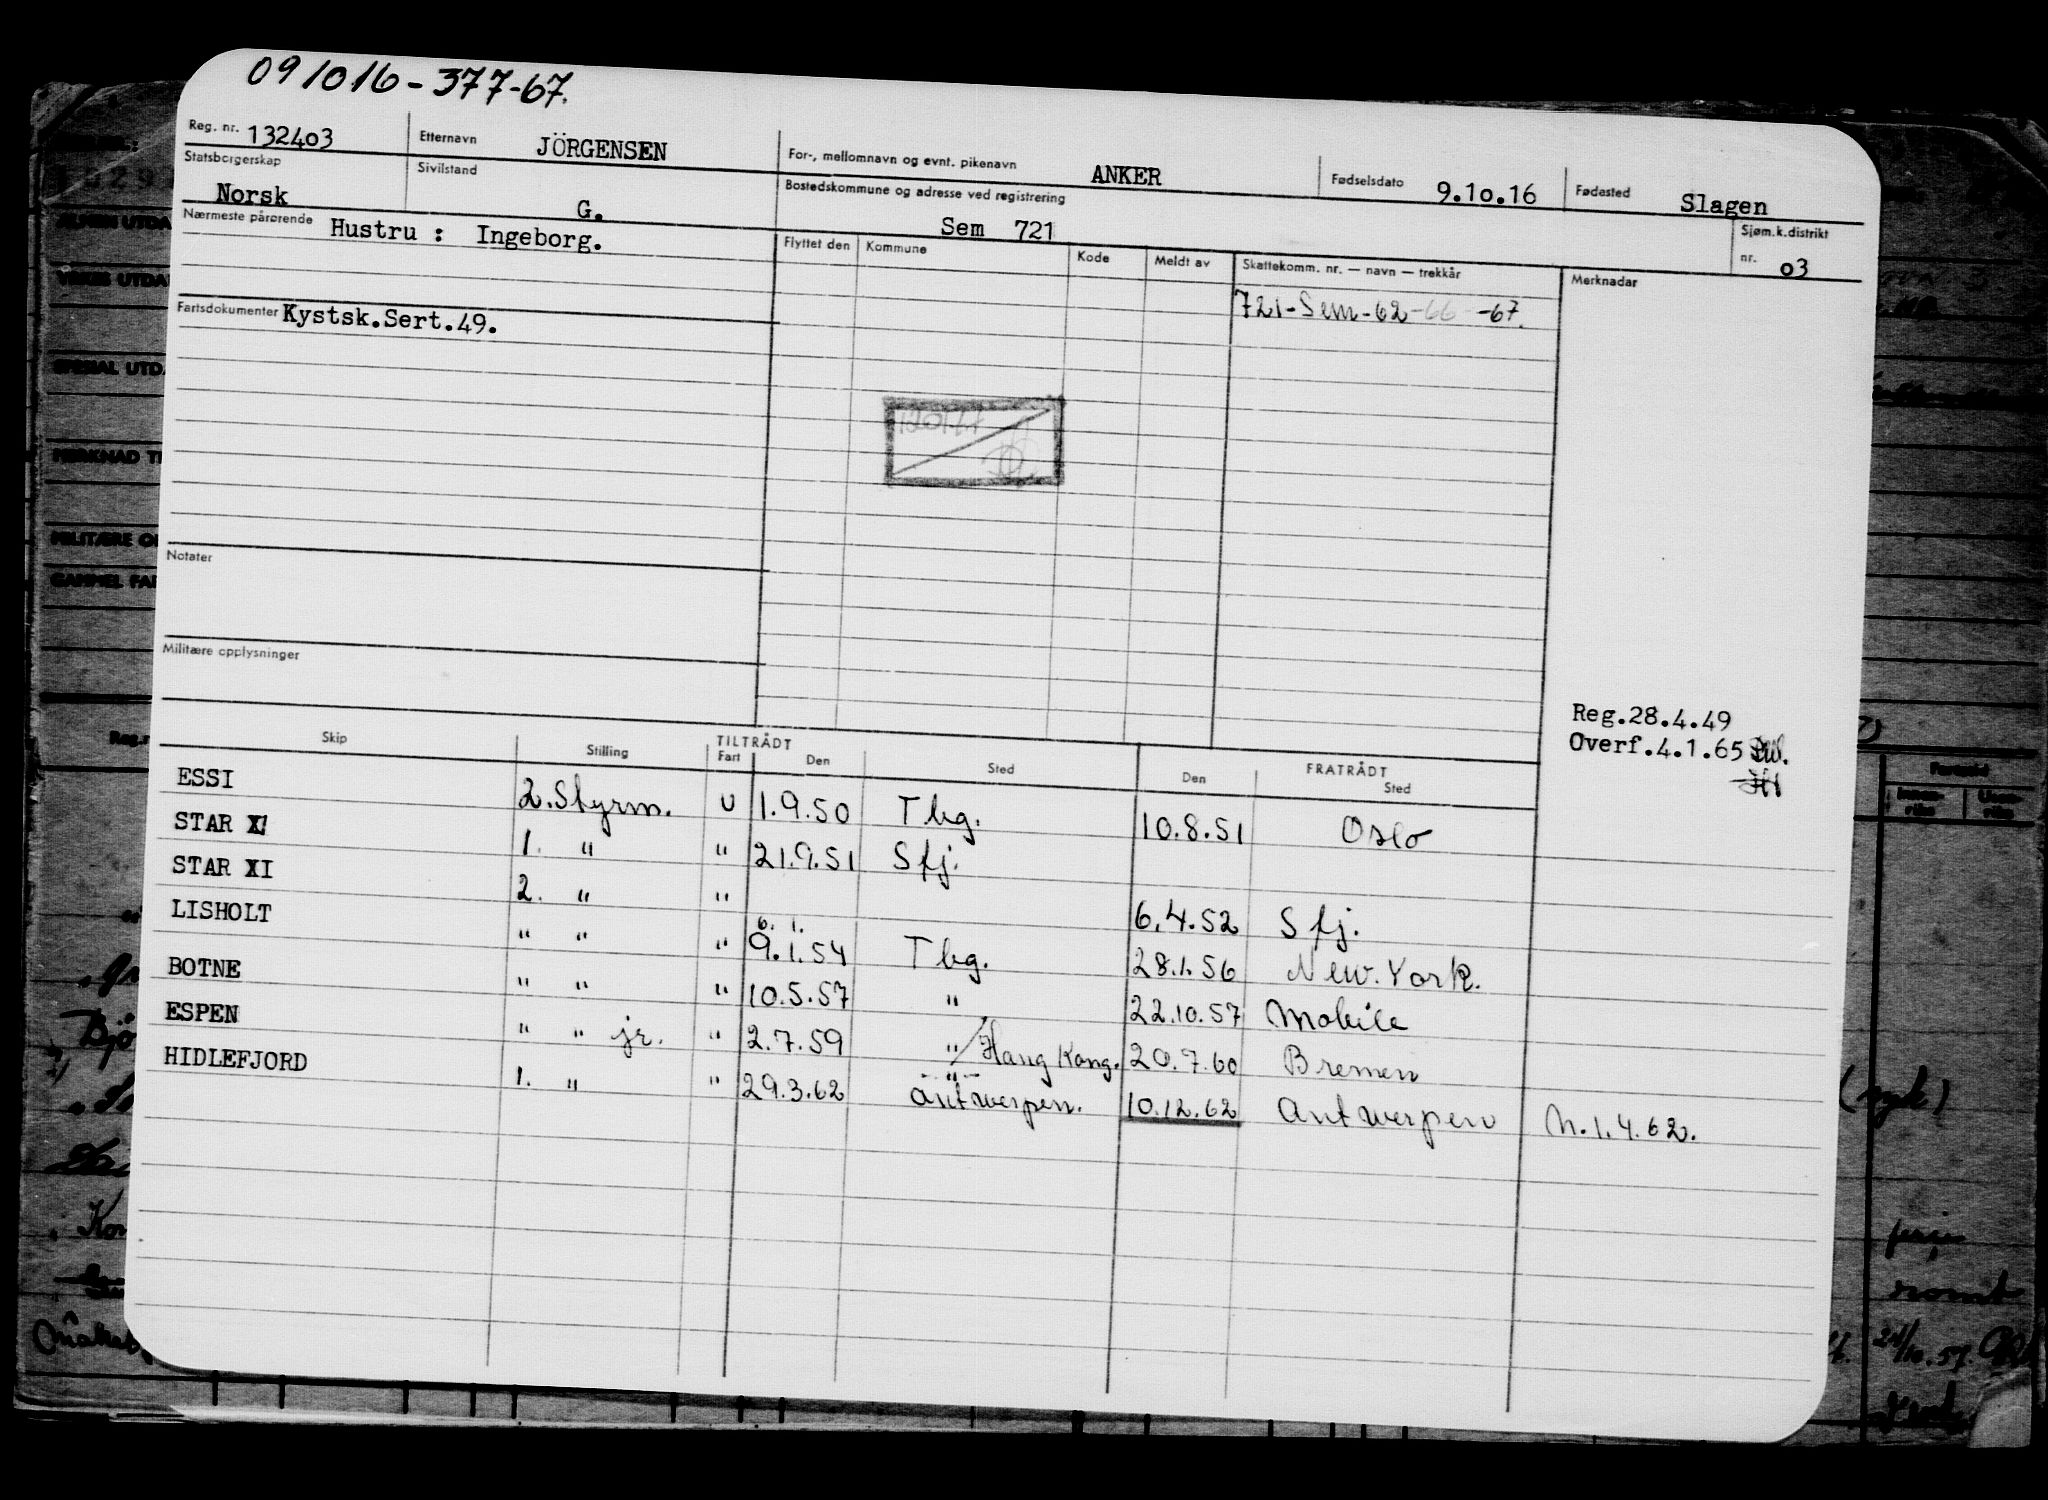 091016-377-67.
Reg. nr. 132403 Etternavn JÖRGENSEN For-, mellomnavn og evnt. pikenavn ANKER Fødselsdato 9.1o.16 Fødested Slagen
Statsborgerskap Norsk Sivilstand G. Bostedskommune og adresse ved registrering Sem 721 Sjøm.k.distrikt nr. o3
Nærmeste pårørende Hustru : Ingeborg.
Flyttet den Kommune Kode Meldt av Skattekomm. nr. — navn — trekkår Merknader
721-Sem-62-66-67.
Fartsdokumenter Kystsk.Sert.49.
Notater
Militære opplysninger
Reg.28.4.49
Overf.4.1.65
Skip Stilling TILTRÅDT Fart Den Sted FRATRÅDT Den Sted
ESSI 2.Styrm. U 1.9.50 Tbg. 10.8.51 Oslo
STAR XI 1. " " 21.9.51 Sfj.
STAR XI 2. " " 6.4.52 Sfj.
6. 1.
LISHOLT " " " 9.1.54 Tbg. 28.1.56 New.York.
BOTNE " " " 10.5.57 " 22.10.57 Mobile
ESPEN " " jr. " 2.7.59 "/Hang Kong. 20.7.60 Bremen
HIDLEFJORD 1. " " 29.3.62 - " - Antwerpen. 10.12.62 Antwerpen M.1.4.62.